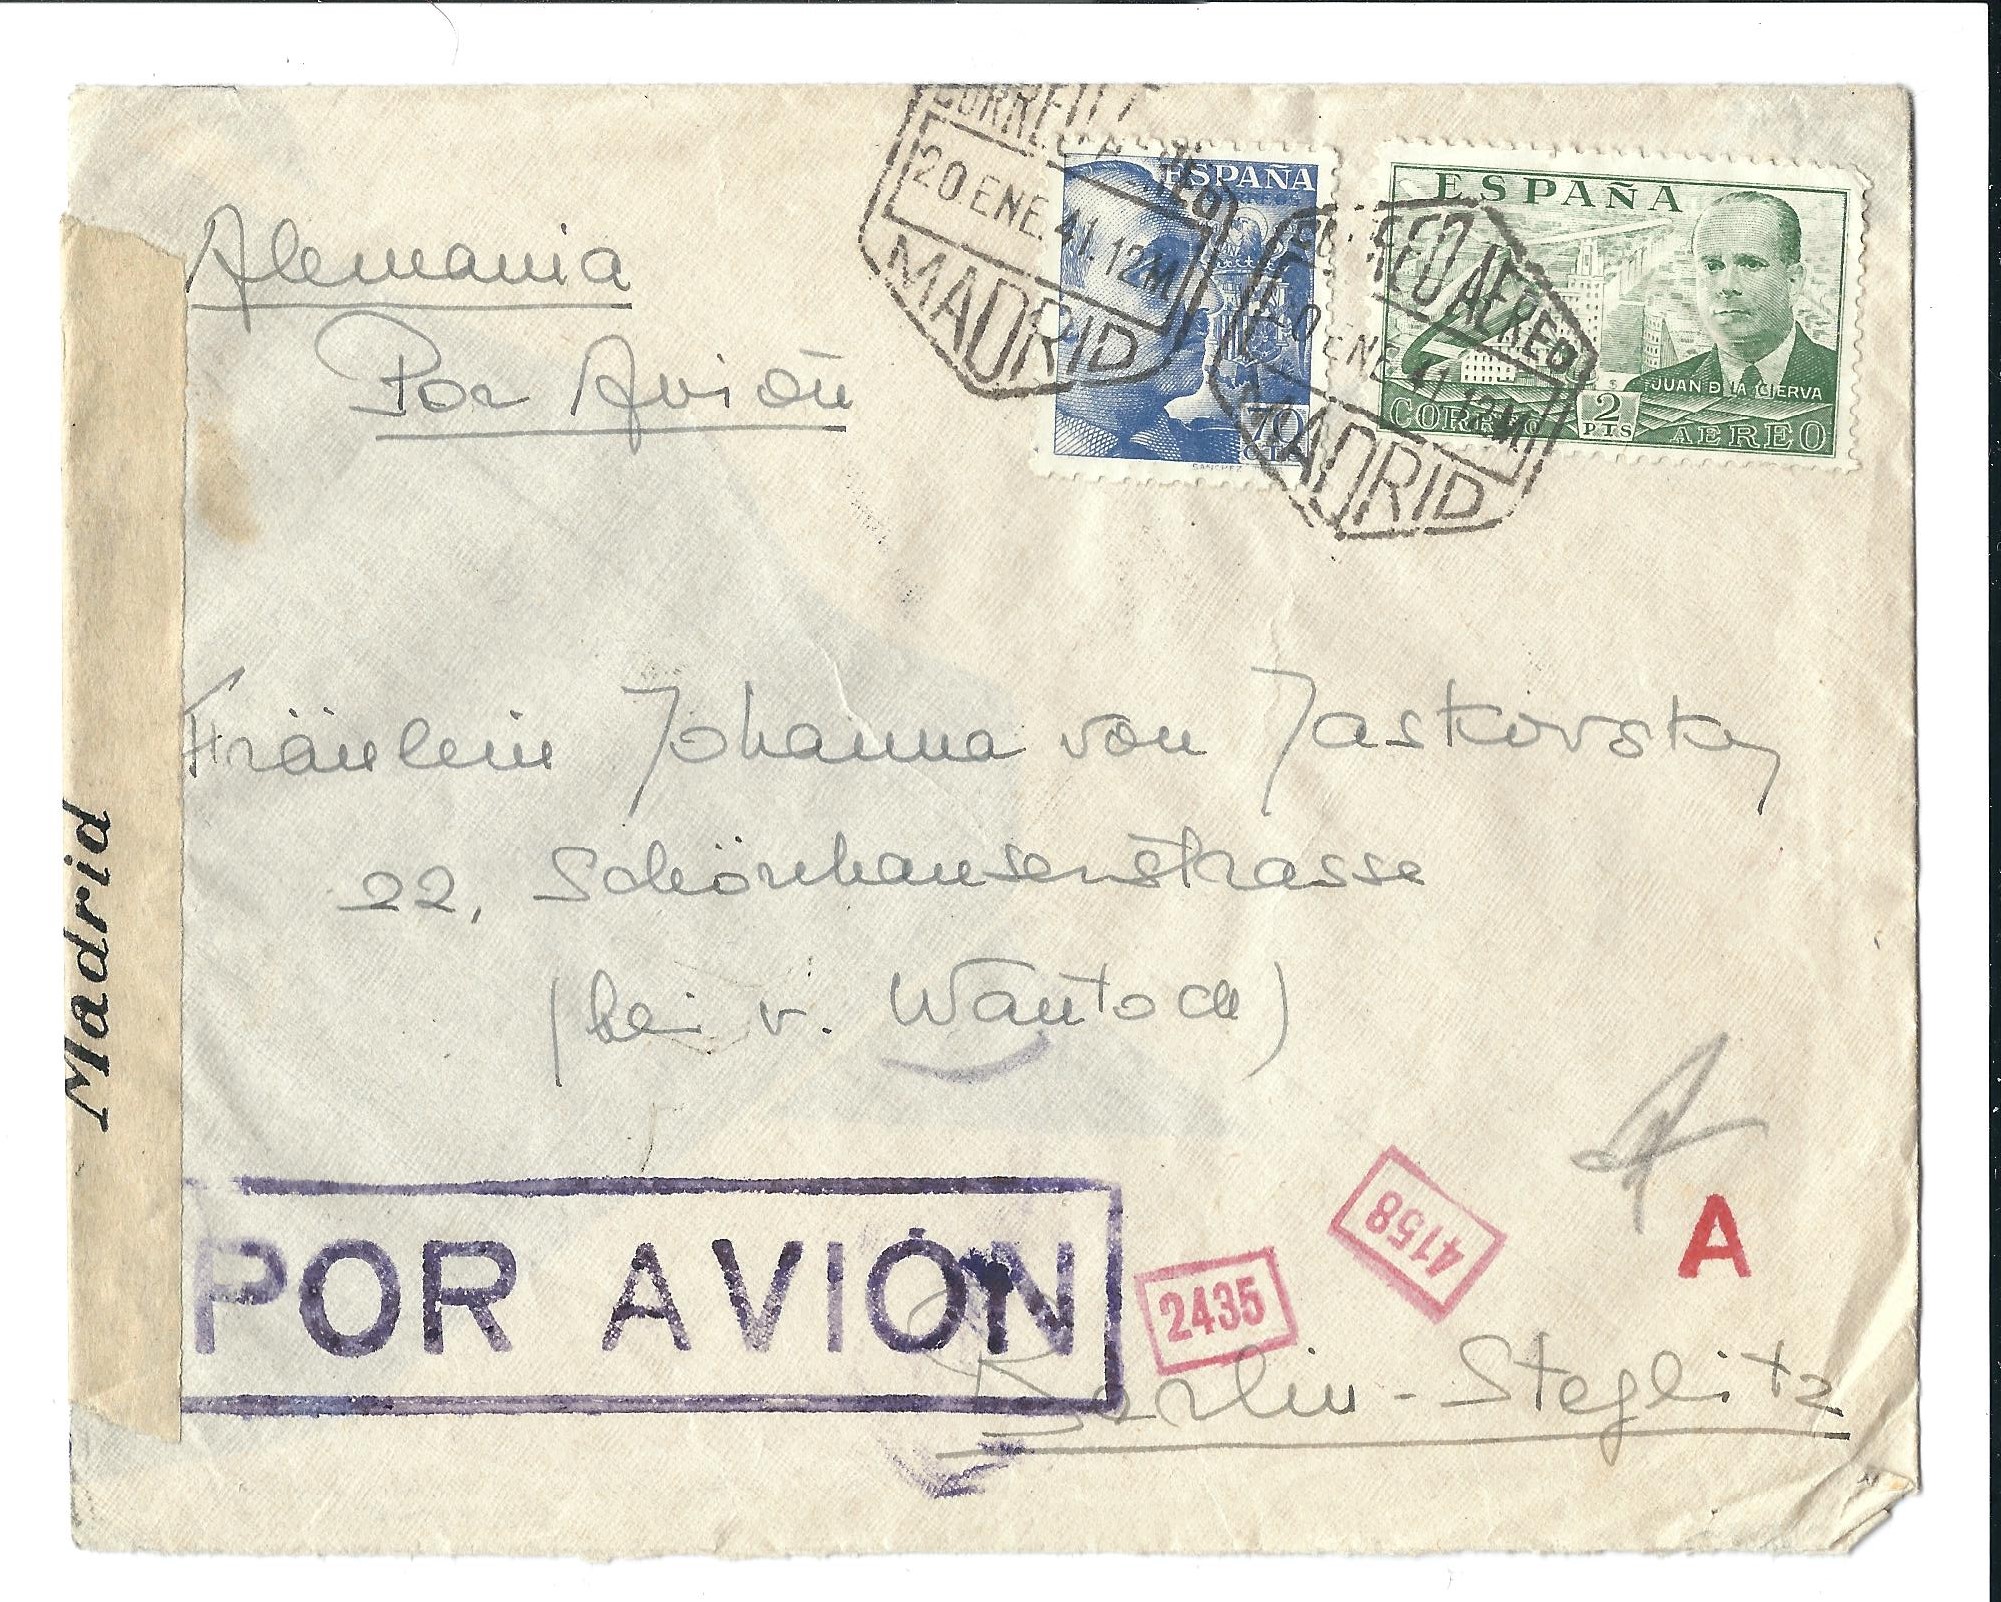 CORREO AEREO
20 ENE. 41. 12M.
MADRID
ESPAÑA
70
CTS
SANCHEZ
CORREO AEREO
20 ENE. 41. 12M.
MADRID
ESPAÑA
JUAN D LA CIERVA
CORREO 2 PTS AEREO
Alemania
Por Avión
Madrid
Fräulein Johanna von Jaskovsky
22, Schönhausenstrasse
(bei v. Wantoch)
POR AVIÓN
2435
4158
A
Berlin-Steglitz